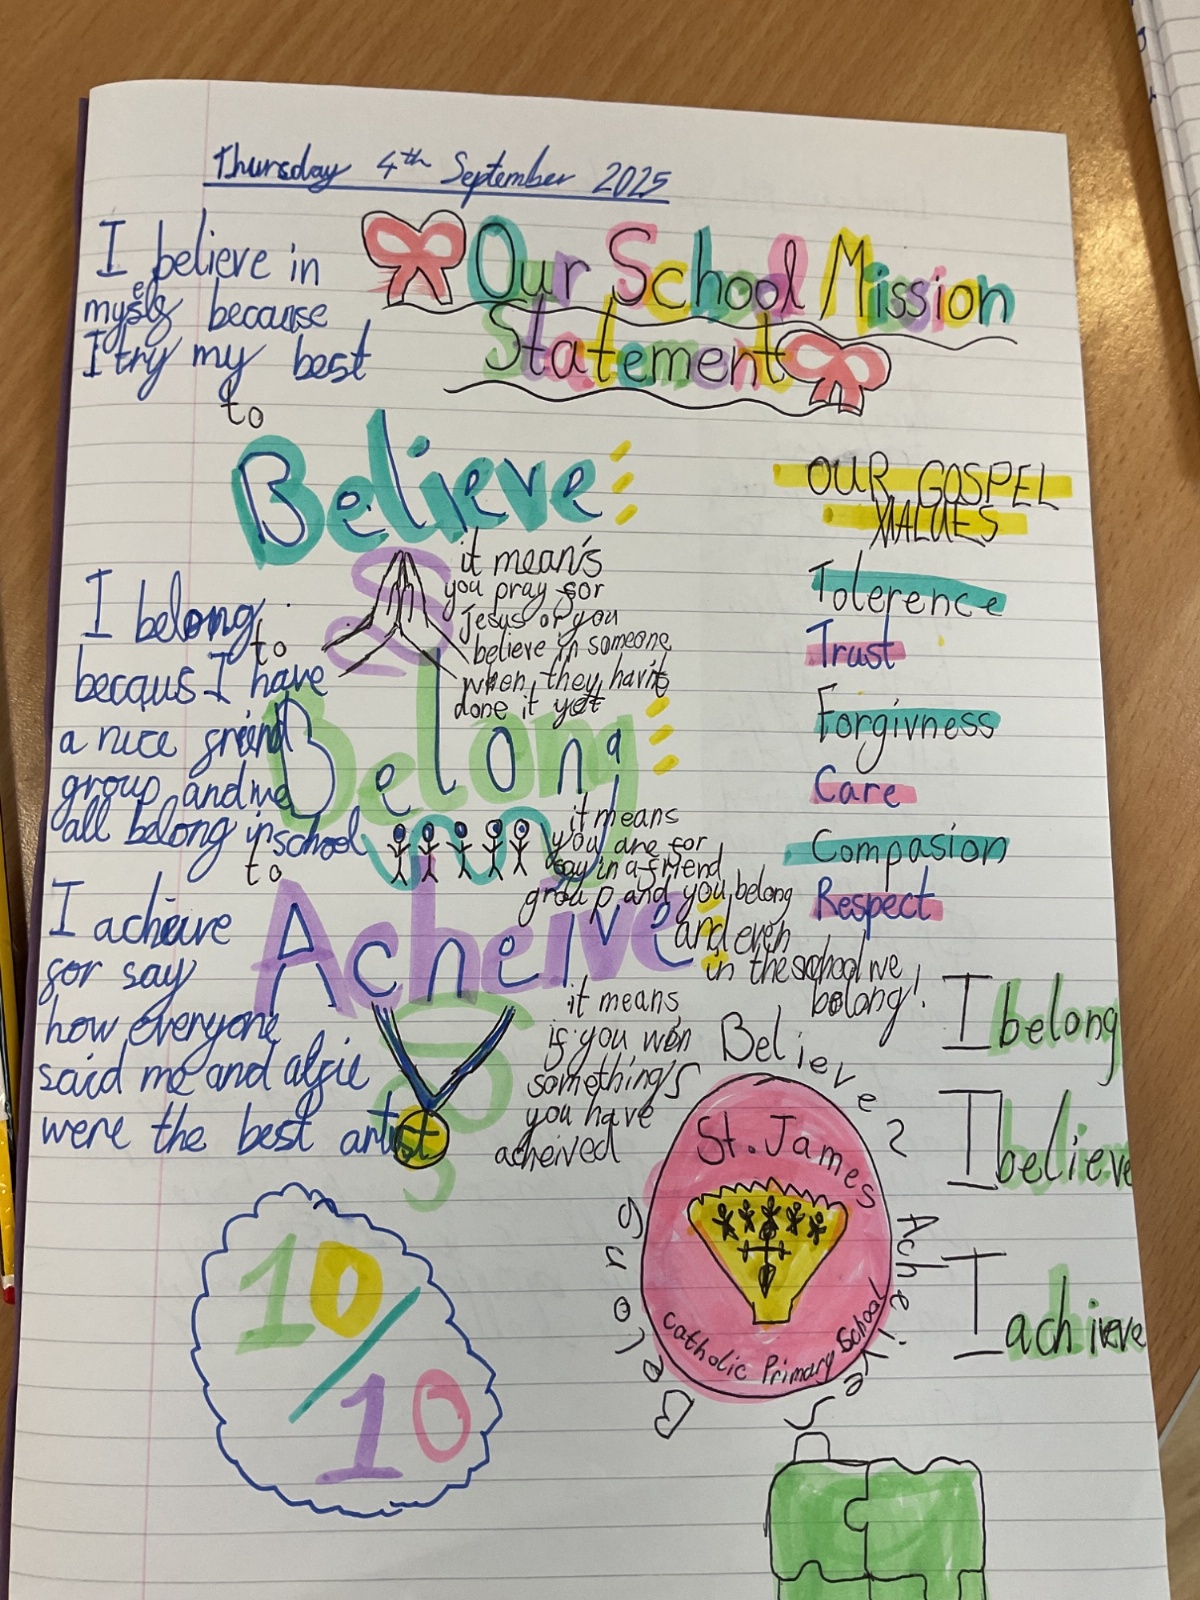 Thursday 4th September 2025
Our School Mission
Statement
I believe in
myself because
I try my best
to
Believe:
it mean's
you pray for
Jesus or you
believe in someone
when they havit
done it yet
I belong
to
becaus I have
a nice friend
group and we
all belong in school
to
Belong:
it means
you are for
say in a friend
group and you belong
and even
in the school we
belong!
I acheive
for say
how everyone
said me and alfie
were the best artist
Acheive:
it means
if you won
something
you have
acheived
OUR GOSPEL
VALUES
Tolerence
Trust
Forgivness
Care
Compasion
Respect
I belong
I believe
I achieve
Believe
Acheive
Belong
St. James
Catholic Primary School
10/10